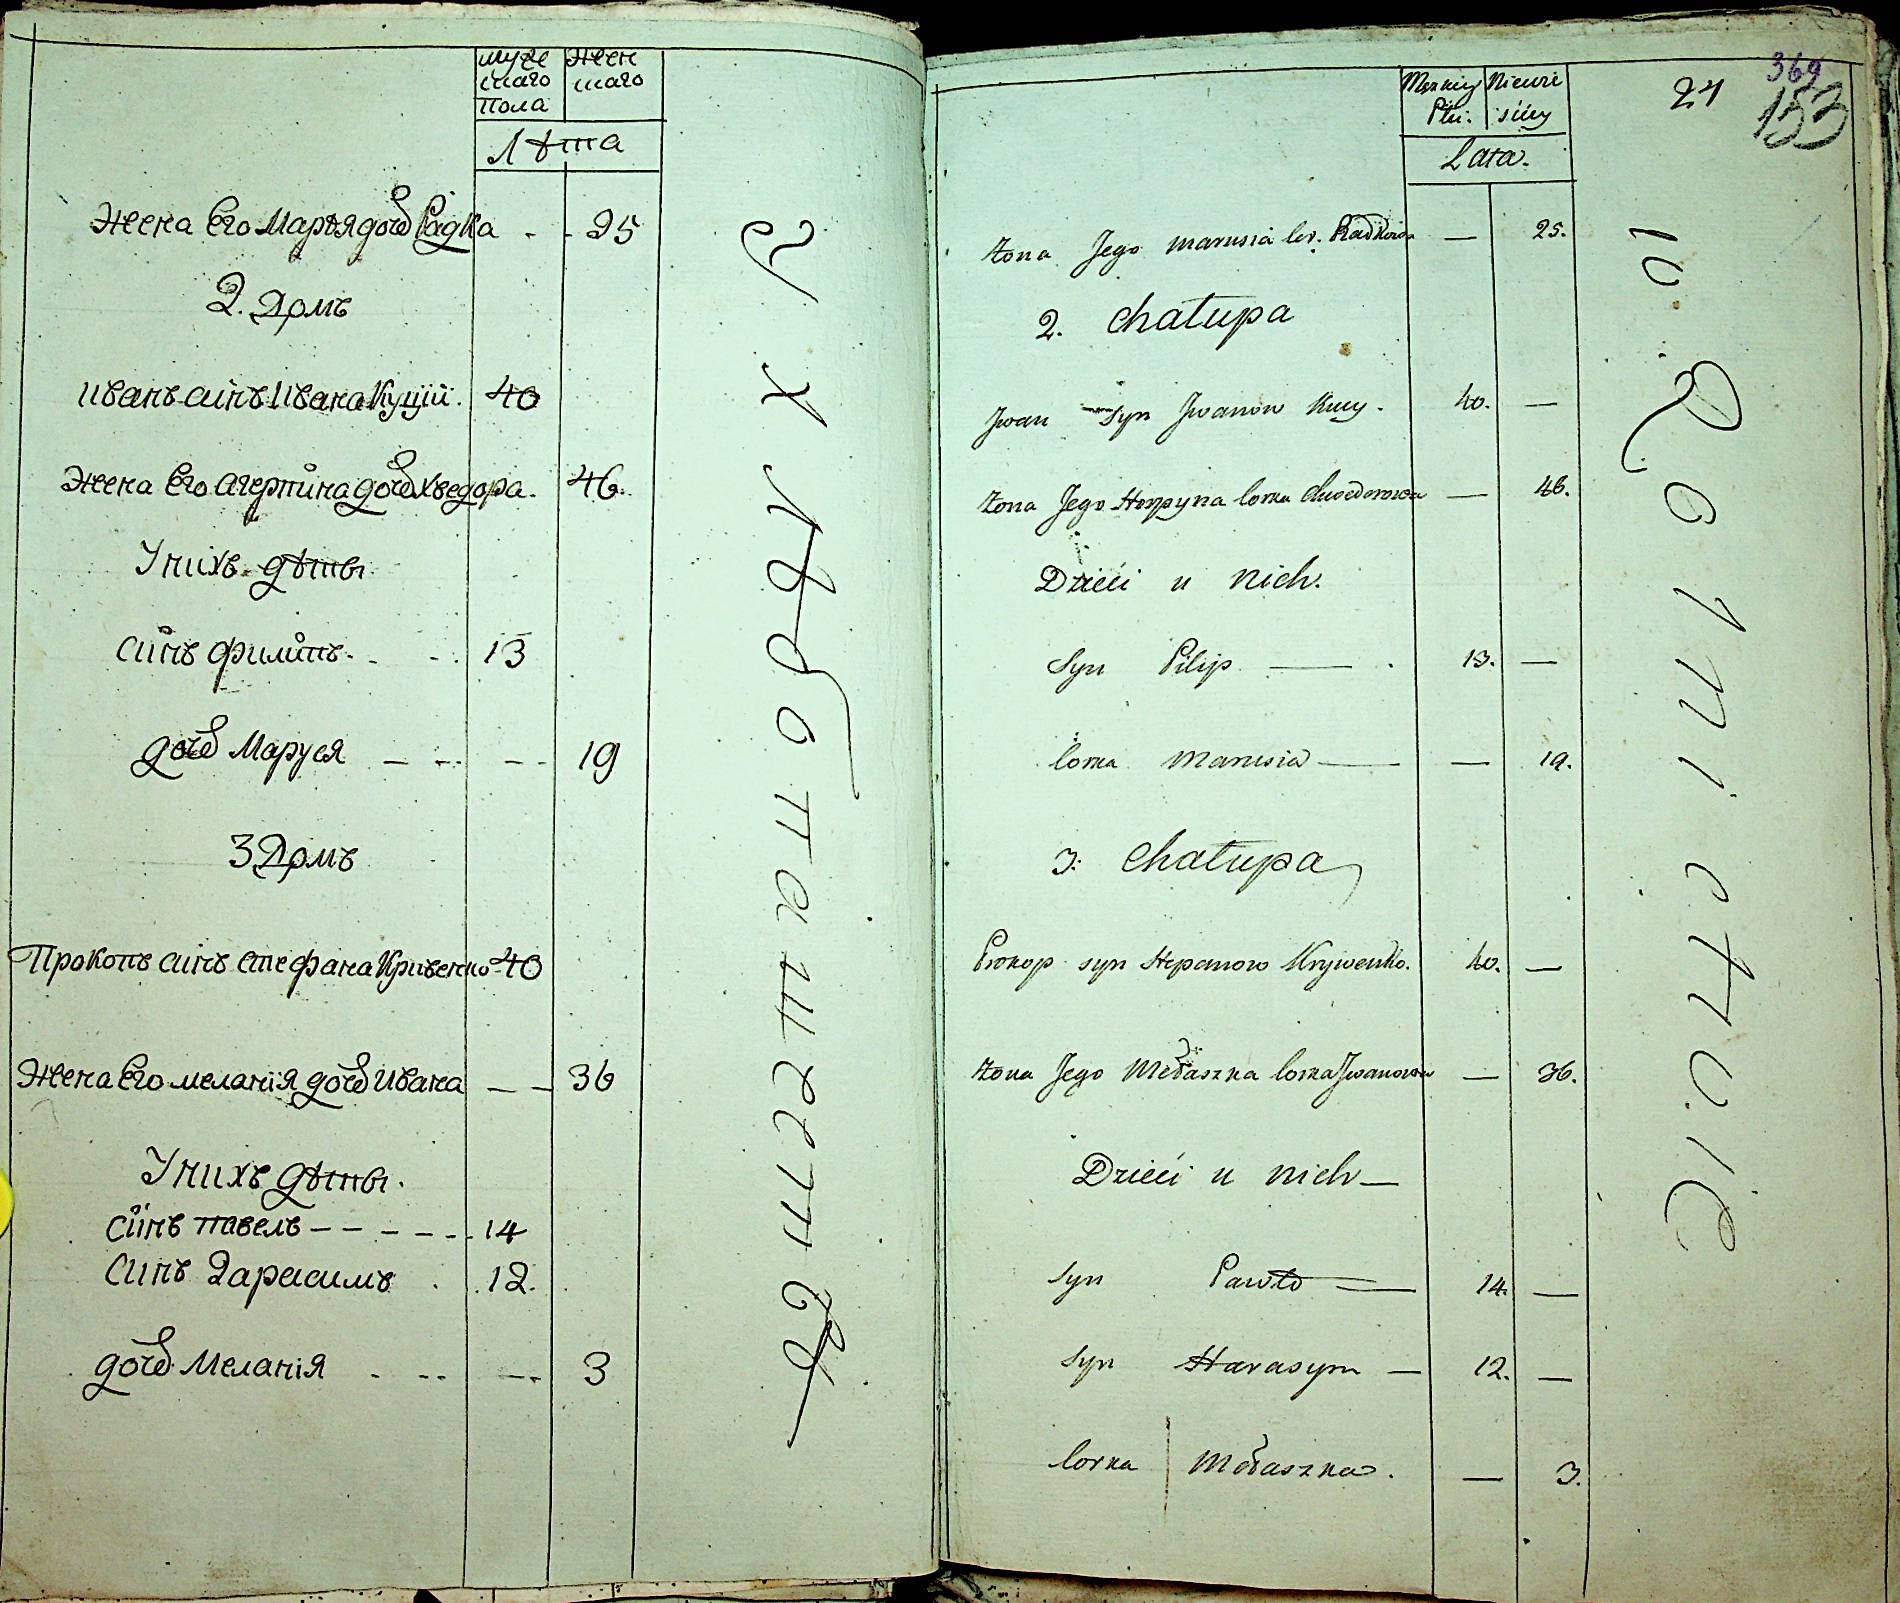 муже
скаго
пола
жен
скаго
Лѣта
Жена Его Марѣя дочь Радка - - 25
2. Домъ
Иванъ синъ Ивана Куций. 40
Жена Его Агерпина дочь Хведора. 46.
У нихъ дѣты
синъ филипъ. - - 13
дочь Маруся - - - - 19
3 Домъ
Прокопъ синъ Стефана Кривенко 40
Жена Его меланія дочь Ивана - - 36
У нихъ дѣты.
синъ павелъ - - - - - 14
Синъ Гарасимъ . 12.
дочь Меланія - - - - 3
У хлѣбопашества
24
369
153
Lata.
Żona Jego Marusia cor. Radkowa — 25.
2. Chałupa
Jwan syn Jwanow Kucy. 40. —
Żona Jego Horpyna Corka Chwedorowa — 46.
Dzieci u nich.
Syn Pilip — 13. —
Corka Marusia — — 19.
3. Chałupa
Prokop syn Stepanow Krywenko. 40. —
Żona Jego Mełaszka Corka Jwanowa — 36.
Dzieci u nich —
Syn Pawło — 14. —
Syn Harasym — 12. —
Corka Mełaszka. — 3.
w Rolnictwie